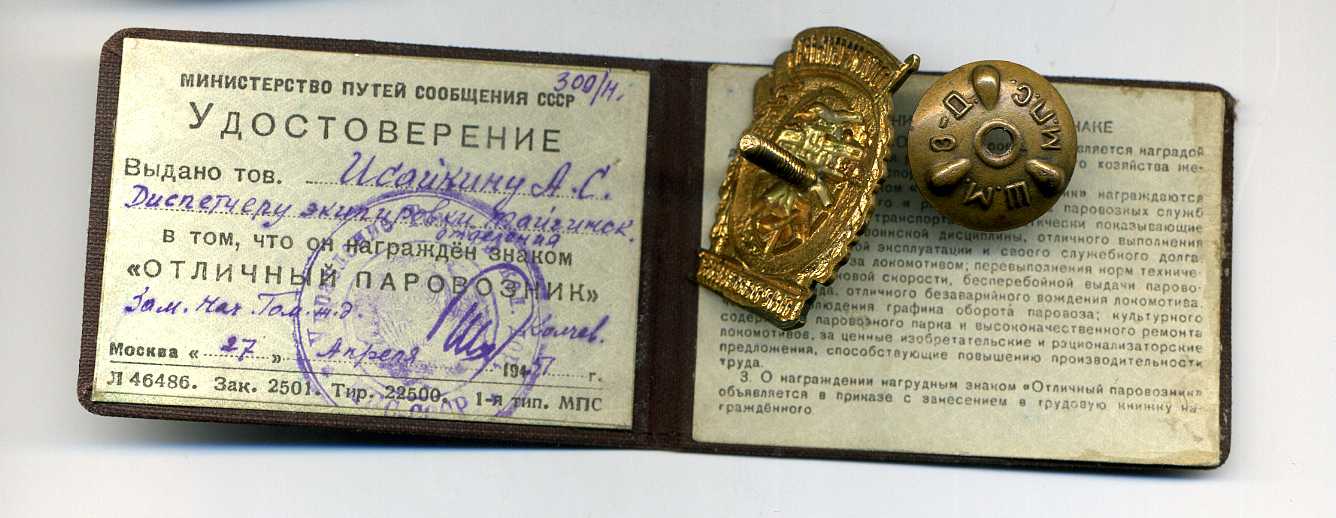 300/н.
МИНИСТЕРСТВО ПУТЕЙ СООБЩЕНИЯ СССР
УДОСТОВЕРЕНИЕ
Выдано тов. Исайкину А.С.
Диспетчеру экипировки
отделения
в том, что он награждён знаком
«ОТЛИЧНЫЙ ПАРОВОЗНИК»
Зам. Нач. Том. ж.д.
Москва « 27 » Апреля 194 г.
Л 46486. Зак. 2501. Тир. 22500. 1-я тип. МПС
М.П.С.
Ш.М.
З-Д.
НАКЕ
вляется наградой
го хозяйства же-
ник» награждаются
паровозных служб
транспорта
тически показывающие
воинской дисциплины, отличного выполнения
ой эксплуатации и своего служебного долга
за локомотивом; перевыполнения норм техниче-
новой скорости, бесперебойной выдачи парово-
да, отличного безаварийного вождения локомотива,
людения графика оборота паровоза; культурного
содер паровозного парка и высококачественного ремонта
локомотивов, за ценные изобретательские и рационализаторские
предложения, способствующие повышению производительности
труда.
3. О награждении нагрудным знаком «Отличный паровозник»
объявляется в приказе с занесением в трудовую книжку на-
граждённого.